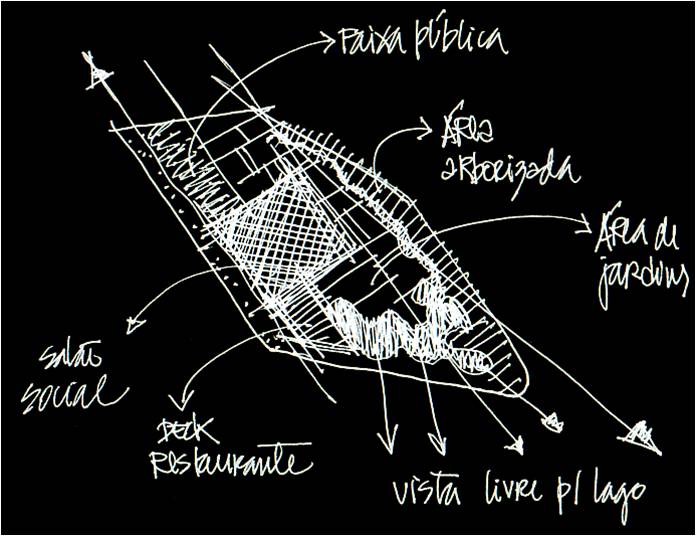 Faixa pública
Área
arborizada
Área de
jardins
Salão
social
DECK
restaurante
vista livre p/ lago